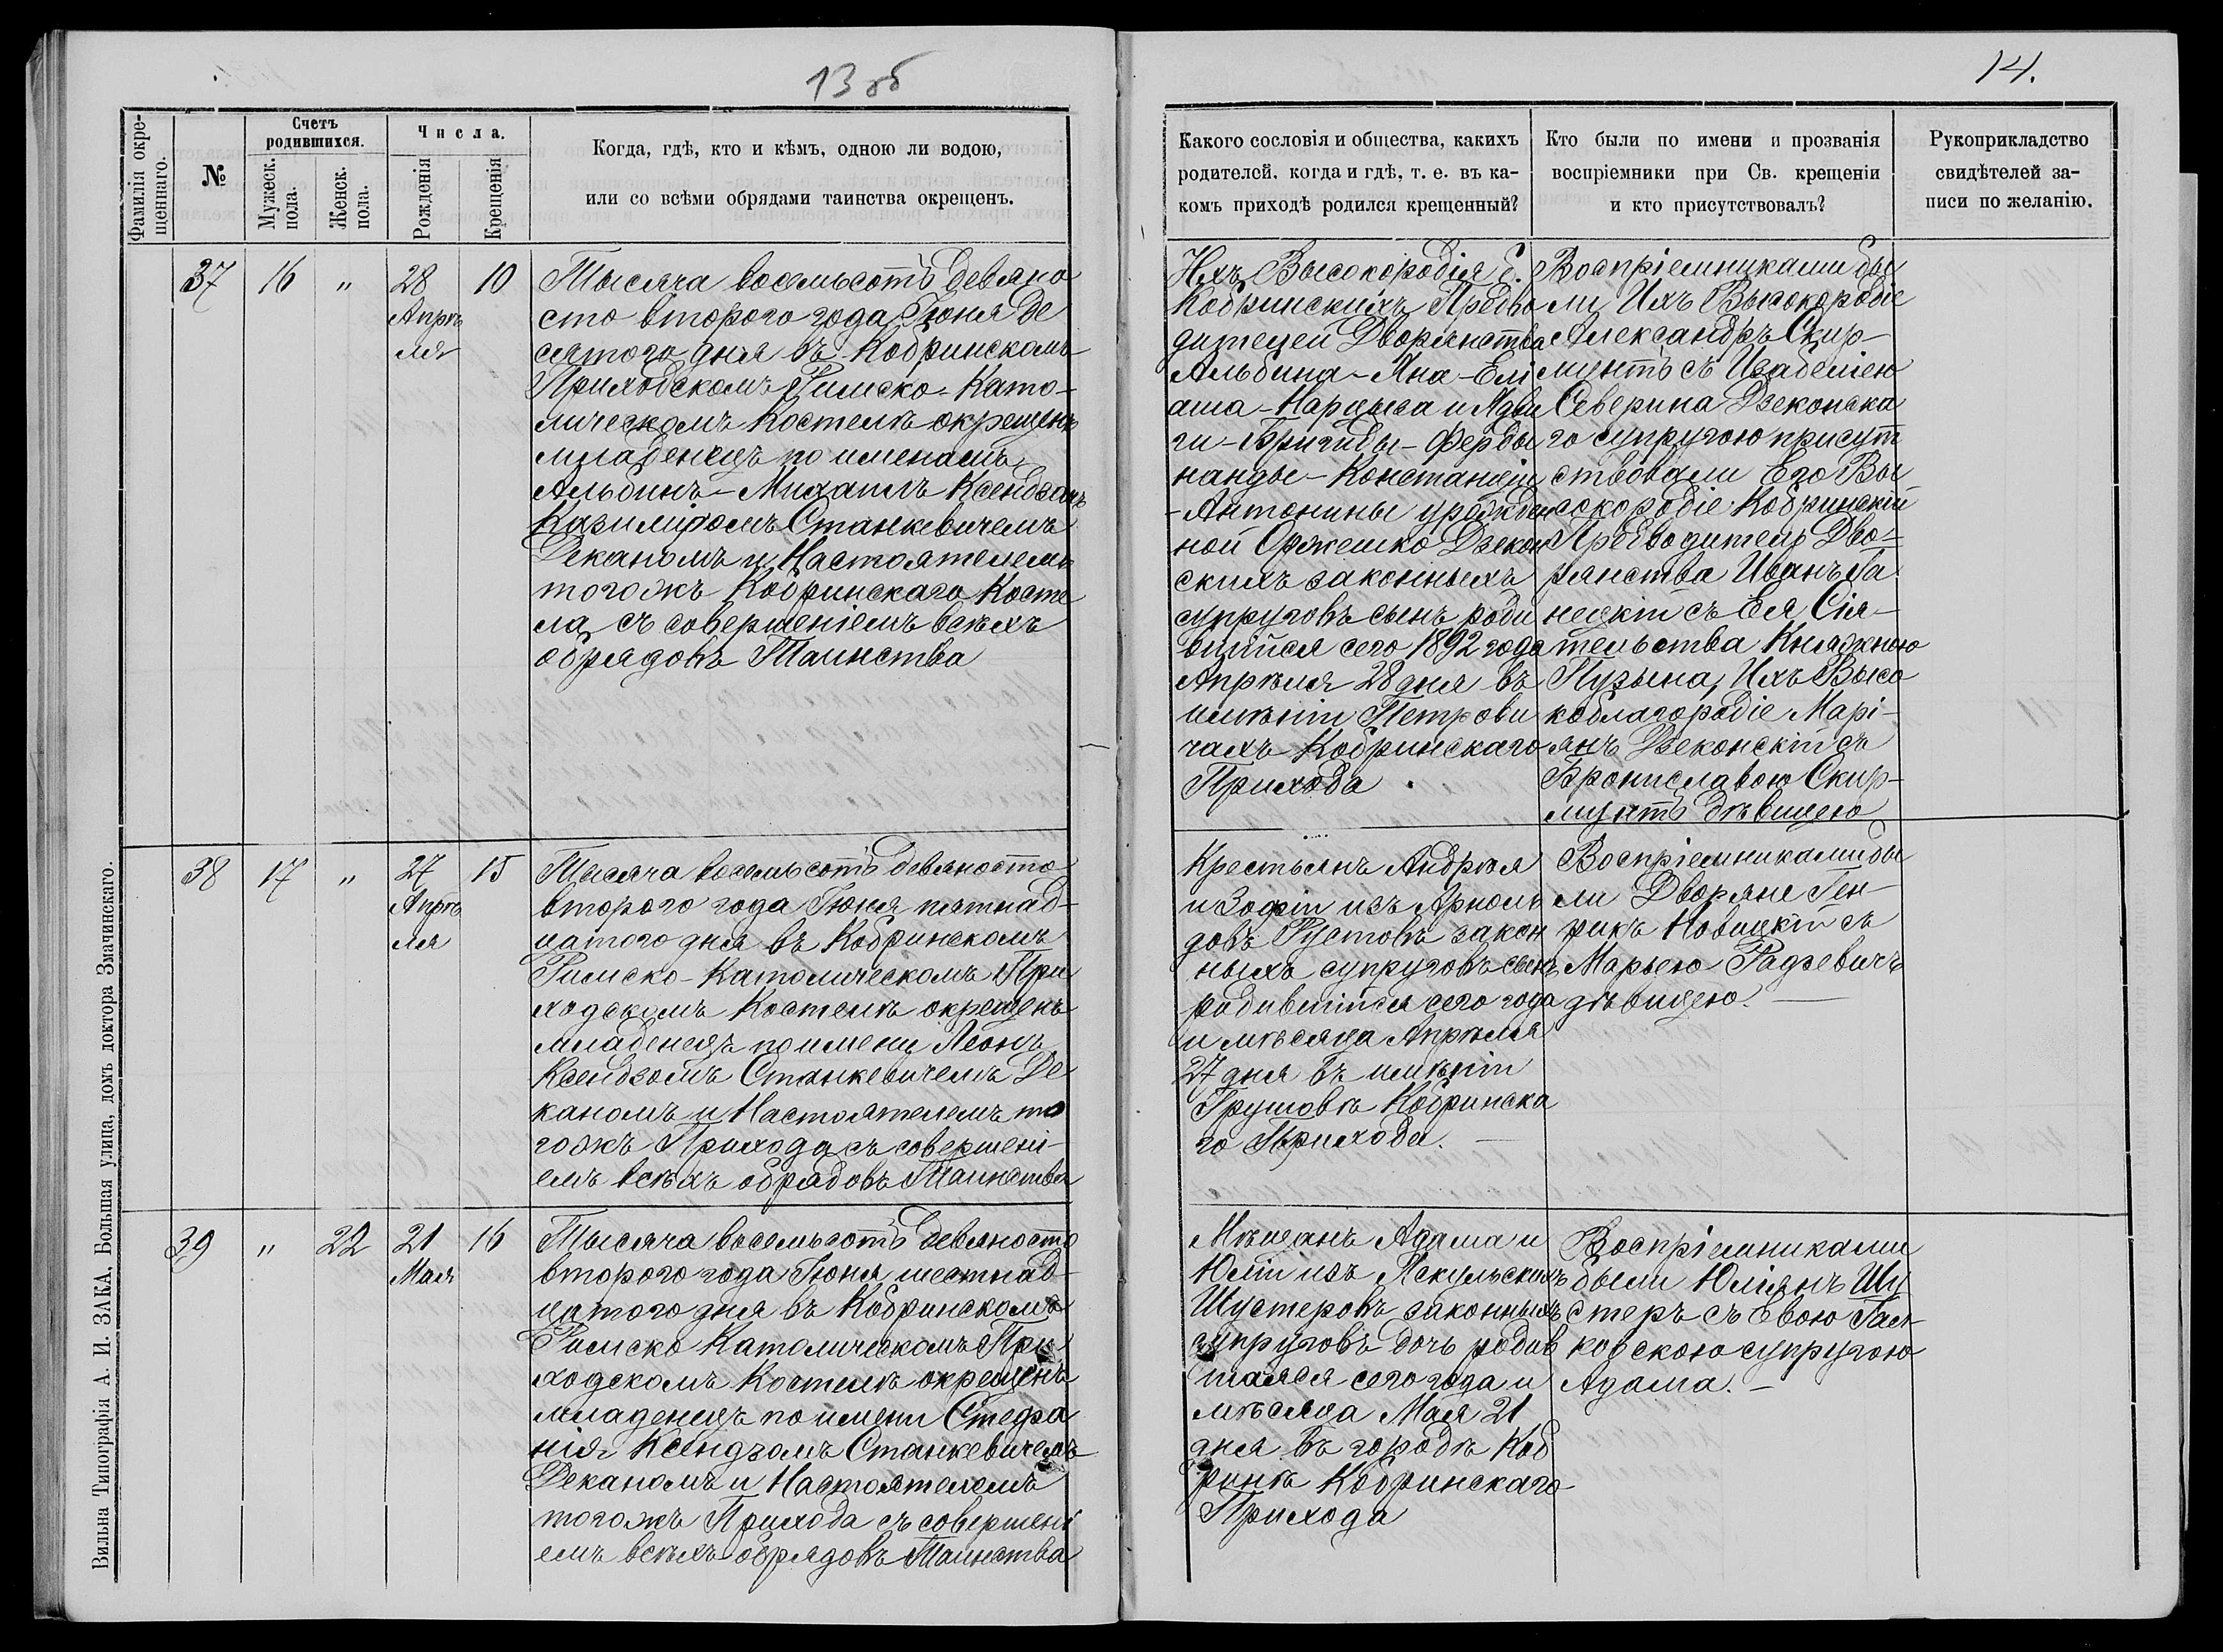 13 об
14.
Фамилія окре-
щеннаго.
№
Счетъ
родившихся.
Мужеск.
пола.
Женск.
пола.
Числа.
Рожденія
Крещенія
Когда, гдѣ, кто и кѣмъ, одною ли водою,
или со всѣми обрядами таинства окрещенъ.
Какого сословія и общества, какихъ
родителей, когда и гдѣ, т. е. въ ка-
комъ приходѣ родился крещенный?
Кто были по имени и прозванія
воспріемники при Св. крещеніи
и кто присутствовалъ?
Рукоприкладство
свидѣтелей за-
писи по желанію.
37 16 " 28 10
Апрѣ
ля
Тысяча восемьсотъ девяно
сто второго года Іюня де
сятого дня въ Кобринскомъ
Приходскомъ Римско-Като-
лическомъ Костелѣ окрещенъ
младенецъ по именамъ
Альбинъ-Михаилъ Ксендзомъ
Казиміромъ Станкевичемъ
Деканомъ и Настоятелемъ
тогожъ Кобринскаго Косте
ла, съ совершеніемъ всѣхъ
обрядовъ Таинства
Ихъ Высокородія б.
Кобринскихъ Предво
дителей Дворянства
Альбина-Яна-Елі
аша-Нарцыса и Ядви
ги-Бригиды-Ферды
нанды-Констанціи
-Антонины урожден
ной Оржешко Дзекон
скихъ законныхъ
супруговъ сынъ роди
вшійся сего 1892 года
Апрѣля 28 дня въ
имѣніи Петрови
чахъ Кобринскаго
Прихода
Воспріемниками бы
ли Ихъ Высокородіе
Александръ Скир-
мунтъ съ Изабеліею
Северина Дзеконска
го супругою присут
ствовали Его Вы
сокородіе Кобринскій
Предводитель Дво-
рянства Иванъ Га
нецкій съ Ея Сія-
тельства Княжною
Пузына, Ихъ Высо
коблагородіе Марі-
янъ Дзеконскій съ
Брониславою Скир-
мунтъ дѣвицею
38 17 " 27 15
Апрѣ
ля
Тысяча восемьсотъ девяносто
второго года Іюня пятнад-
цатого дня въ Кобринскомъ
Римско-Католическомъ При
ходскомъ Костелѣ окрещенъ
младенецъ по имени Леонъ
Ксендзомъ Станкевичемъ Де
каномъ и Настоятелемъ то
гожъ Прихода съ совершені-
емъ всѣхъ обрядовъ Таинства
Крестьянъ Андрея
и Зофіи изъ Арноль
довъ Рустовъ закон
ныхъ супруговъ сынъ
родившійся сего года
и мѣсяца Апрѣля
27 дня въ имѣніи
Грушовѣ Кобринска
го Прихода.
Воспріемниками бы
ли Дворяне Ген-
рикъ Новицкій съ
Марьею Радзевичъ
дѣвицею.
39 " 22 21 16
Мая
Тысяча восемьсотъ девяносто
второго года Іюня шестнад-
цатого дня въ Кобринскомъ
Римско Католическомъ При
ходскомъ Костелѣ окрещенъ
младенецъ по имени Стефа
нія Ксендзомъ Станкевичемъ
Деканомъ и Настоятелемъ
тогожъ Прихода съ совершені
емъ всѣхъ обрядовъ Таинства
Мѣщанъ Адама и
Юліи изъ Яскульскихъ
Шустеровъ законныхъ
супруговъ дочь родив
шаяся сего года и
мѣсяца Мая 21
дня въ городѣ Коб
ринѣ Кобринскаго
Прихода
Воспріемниками
были Юліянъ Шу
стеръ съ Евою
ковскою супругою
Адама.
Вильна Типографія А. И. ЗАКА, Большая улица, домъ доктора Змачинскаго.